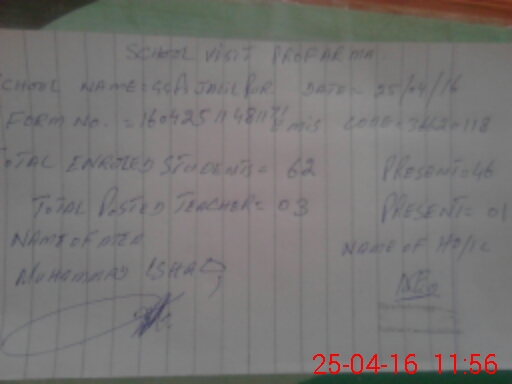 SCHOOL VISIT PROFARMA.
SCHOOL NAME= GGPS JALLPUR DATE= 25/04/16
FORM NO. = EMIS CODE=
TOTAL ENROLED STUDENTS= 62 PRESENT=46
TOTAL POSTED TEACHER= 03 PRESENT= 01
NAME OF NAME OF HD/IC
MUHAMMAD
25-04-16 11:56